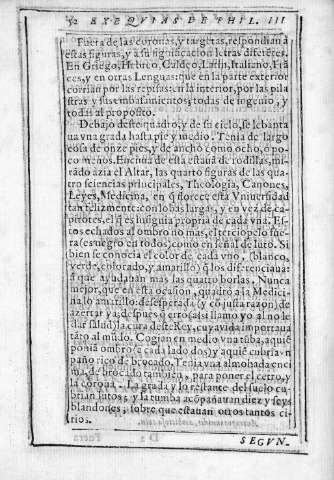 52 EXEQVIAS DE PHIL. III
Fuera de las coronas, y targetas, respondian a
estas figuras, y a su significacion letras diferētes.
En Griego, Hebreo, Caldeo, Latin, Italiano, Frā
ces, y en otras Lenguas: que en la parte exterior
corrian por las repisas: en la interior, por las pila
stras y sus embasamientos; todas de ingenio, y
todas al proposito.
Debajo deste quadro, y de su cielo, se lebanta
ua vna grada hasta pie y medio. Tenia de largo
cosa de onze pies, y de ancho como ocho, ò po
co menos. Encima de esta estauā de rodillas, mi-
rādo azia el Altar, las quatro figuras de las qua
tro sciencias principales, Theologia, Canones,
Leyes, Medicina, en q̄ florece esta Vniuersidad
tan felizmente: con lobas largas, y en vez, de ca-
pirotes, el q̄ es insignia propria de cada vna. Es-
tos echados al ombro no mas, el terciopelo fue-
ra (es negro en todos) como en señal de luto. Si
bien se conocia el color de cada vno, (blanco,
verde, colorado, y amarillo) q̄ los diferenciaua:
a que ayudaban mas las quatro borlas. Nunca
mejor, que en esta ocasion, quadrò a la Medici-
na lo amarillo: desesperada (y cō justa razon) de
azertar ya, despues q̄ errò (assi llamo yo al no le
dar salud) la cura deste Rey, cuya vida importaua
tāto al mūdo. Cogian en medio vna tūba, a quiē
ponia ombro (a cada lado dos) y a quiē cubria vn
paño rico de brocado. Tenia vna almohada enci
ma, de brocado tambien, para poner el cetro, y
la corona. La grada y lo restante del suelo cu-
brian lutos; y la tumba acōpañauan diez y seys
blandones, sobre que estauan otros tantos ci-
rios.
SEGVN.